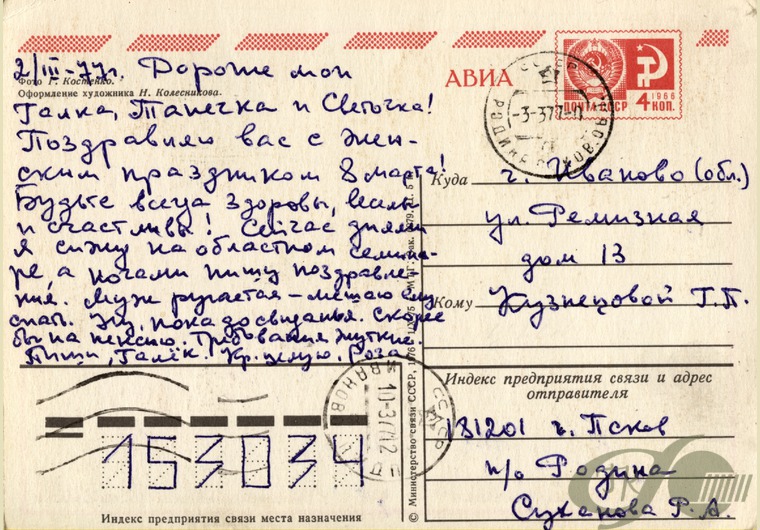 2/III-77г. Дорогие мои
Фото Г. Костенко.
Оформление художника Н. Колесникова.
Галка, Танечка и Светочка!
Поздравляю вас с жен-
ским праздником 8 марта!
Будьте всегда здоровы, веселы
и счастливы! Сейчас днями
я сижу на областном семина-
ре, а ночами пишу поздравле-
ния. Муж ругается – мешаю ему
спать. Ну, пока до свиданья. Скорее
бы на пенсию. Требования жуткие.
Пиши, Галёк. Кр. целую, Роза
АВИА
ПОЧТА СССР
1966
4 КОП.
СССР
-3-377-
Куда г. Иваново (обл.)
ул. Ремизная
дом 13
Кому Кузнецовой Г.П.
Индекс предприятия связи и адрес
отправителя
181201 г. Псков
п/о Родина
Суханова Р. А.
СССР
ИВАНОВО
10-377
153034
Индекс предприятия связи места назначения
© Министерство связи СССР, 1976